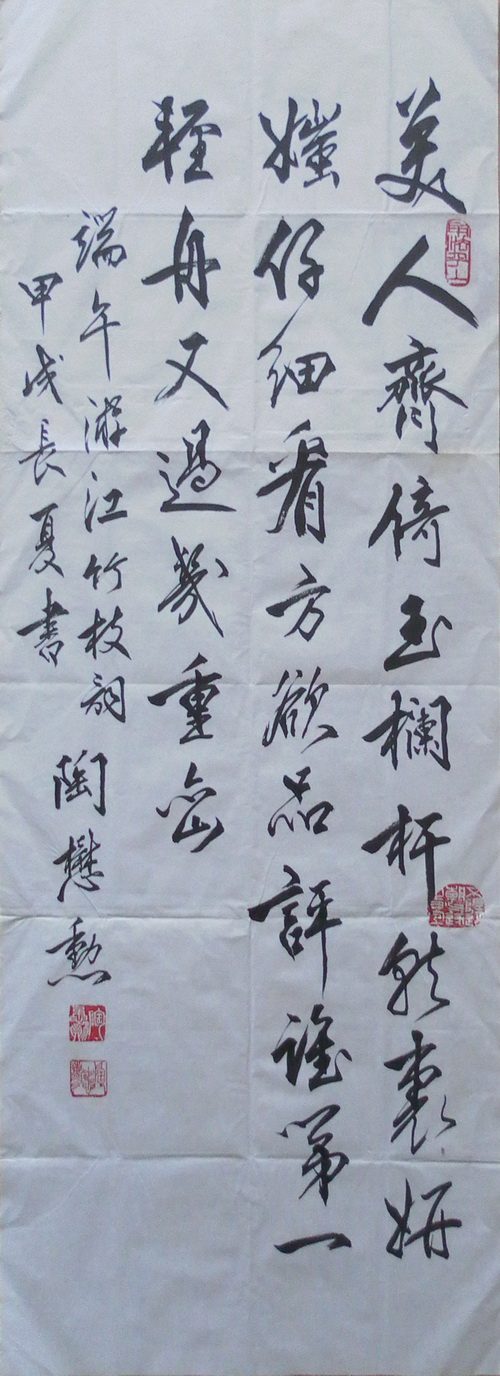 美人齊倚玉欄杆就裏妍
媸仔細看方欲品評誰第一
輕舟又過幾重峦
端午游江竹枝詞
甲戌長夏書
陶懋勲